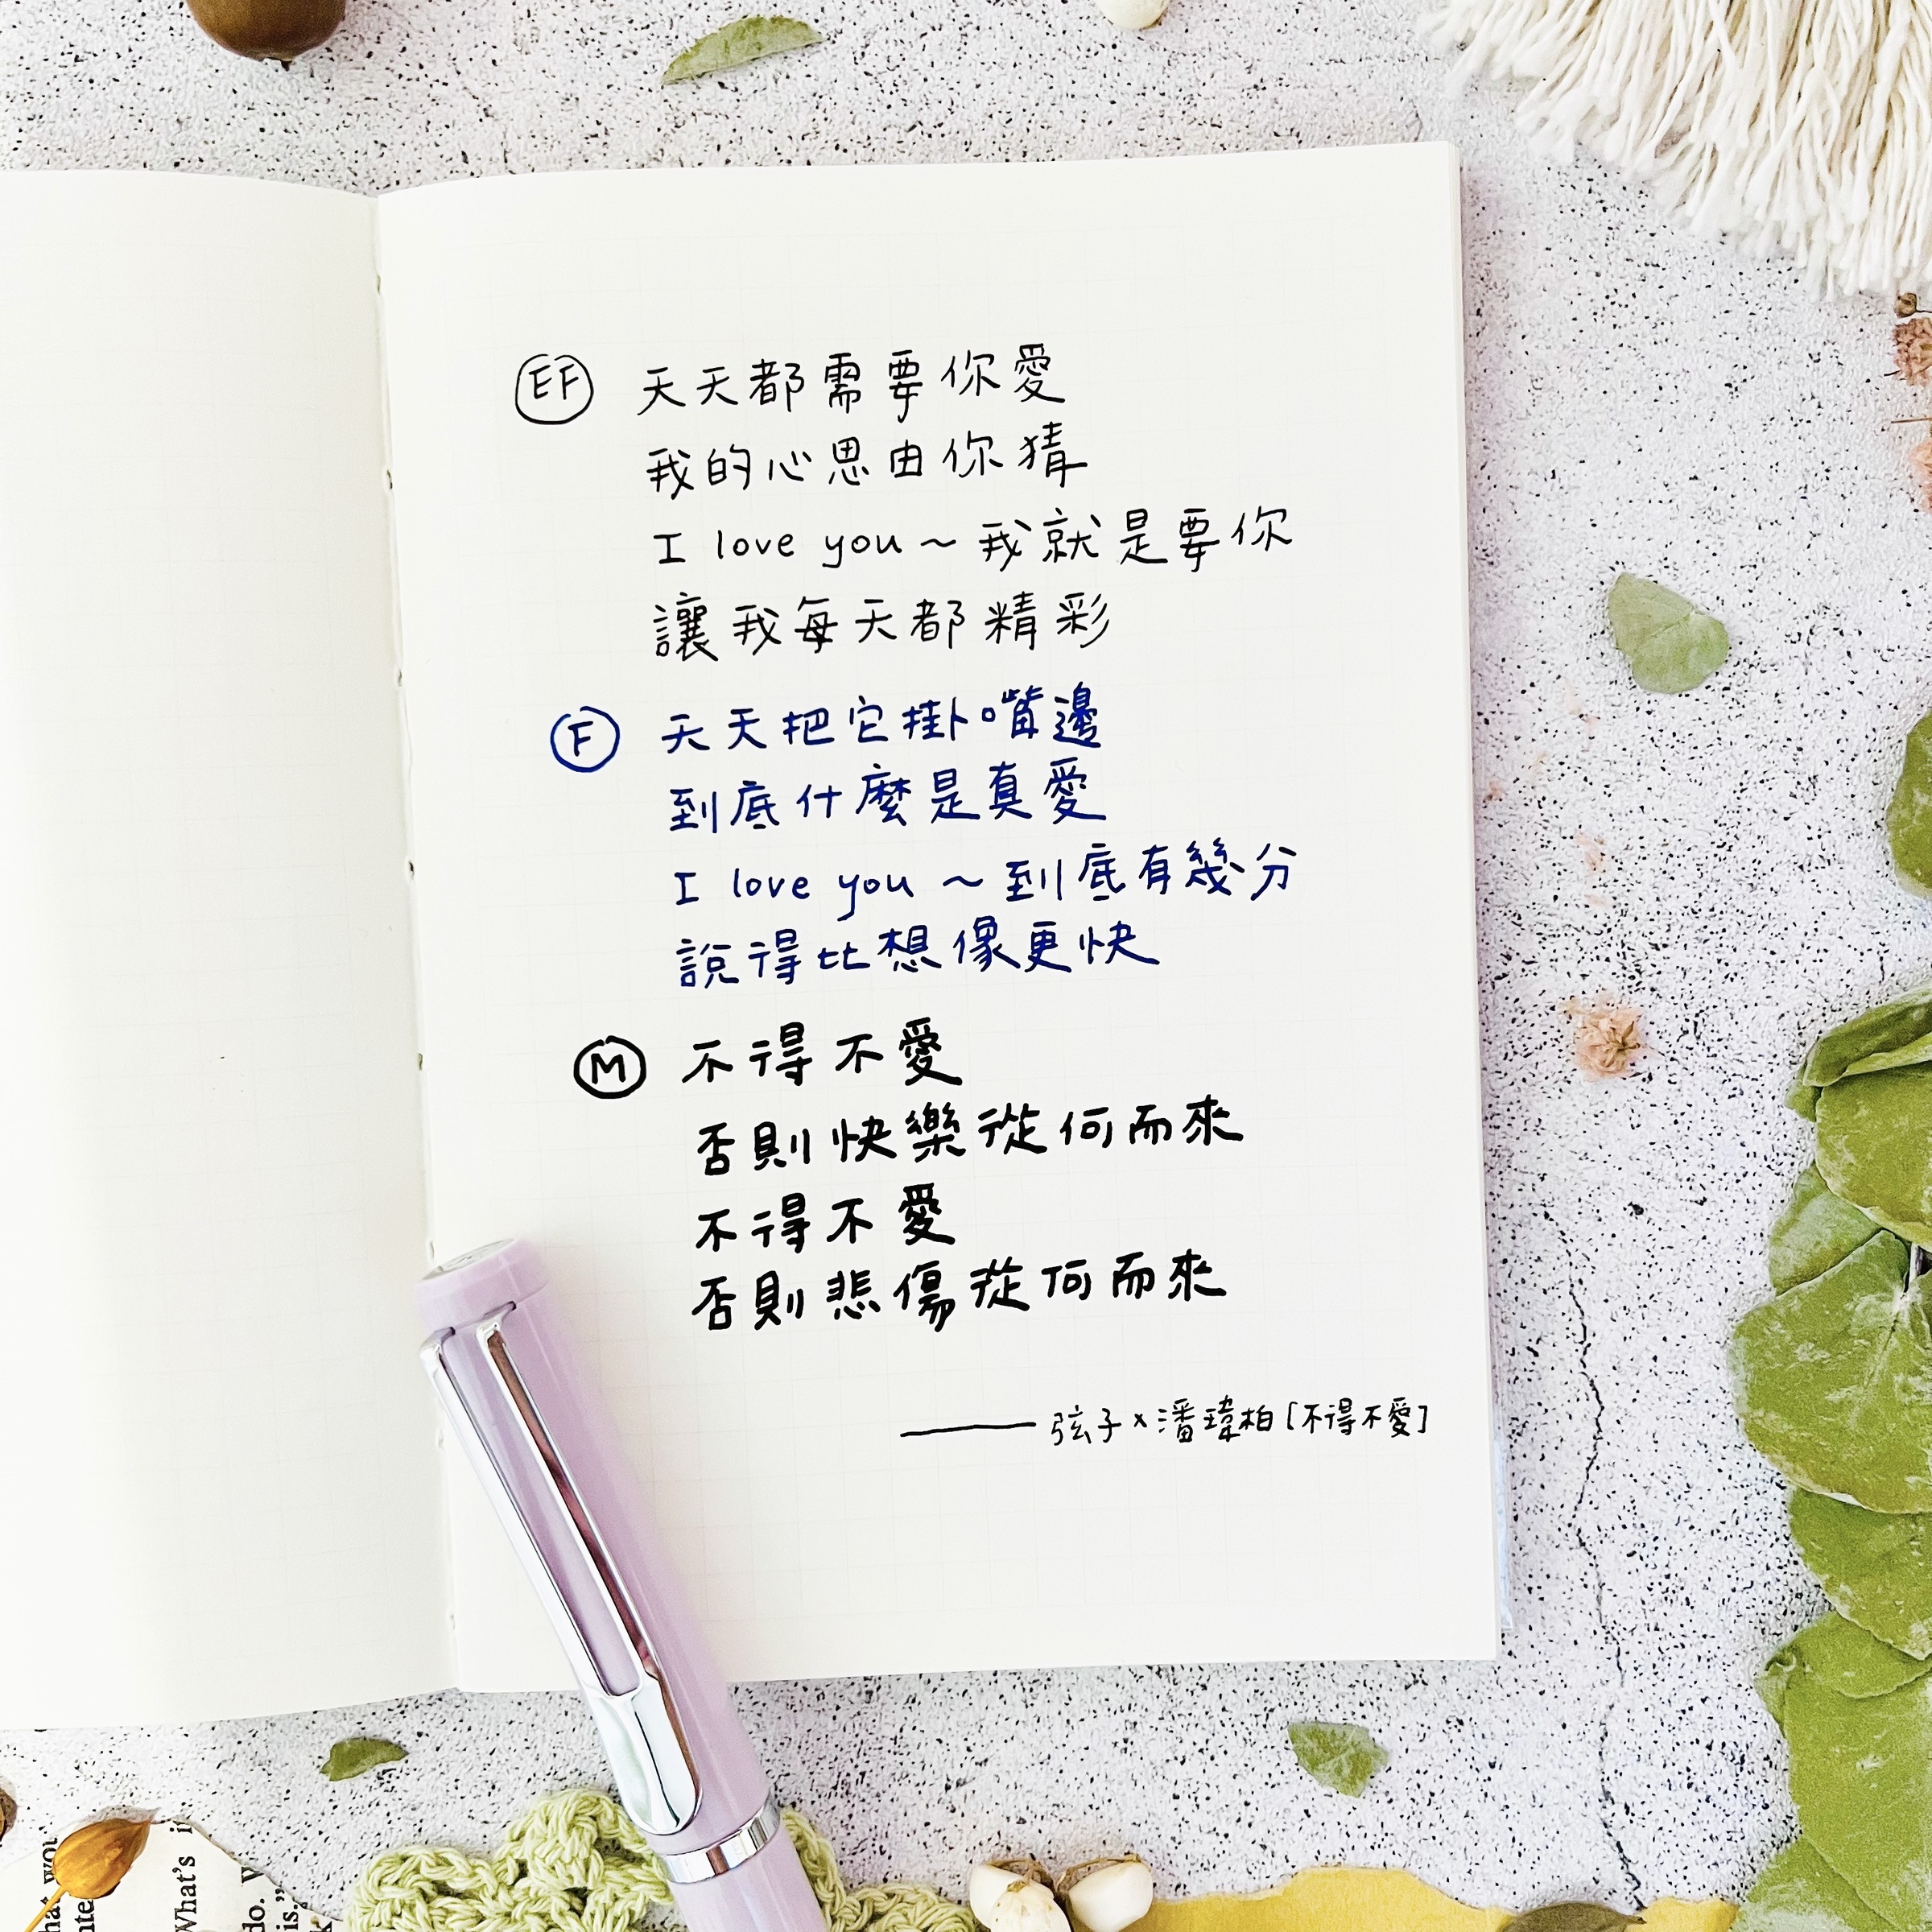 EF 天天都需要你愛
我的心思由你猜
I love you ~ 我就是要你
讓我每天都精彩
F 天天把它掛嘴邊
到底什麼是真愛
I love you ~ 到底有幾分
說得比想像更快
M 不得不愛
否則快樂從何而來
不得不愛
否則悲傷從何而來
—— 弦子 × 潘瑋柏 [不得不愛]
What's
do.
is."